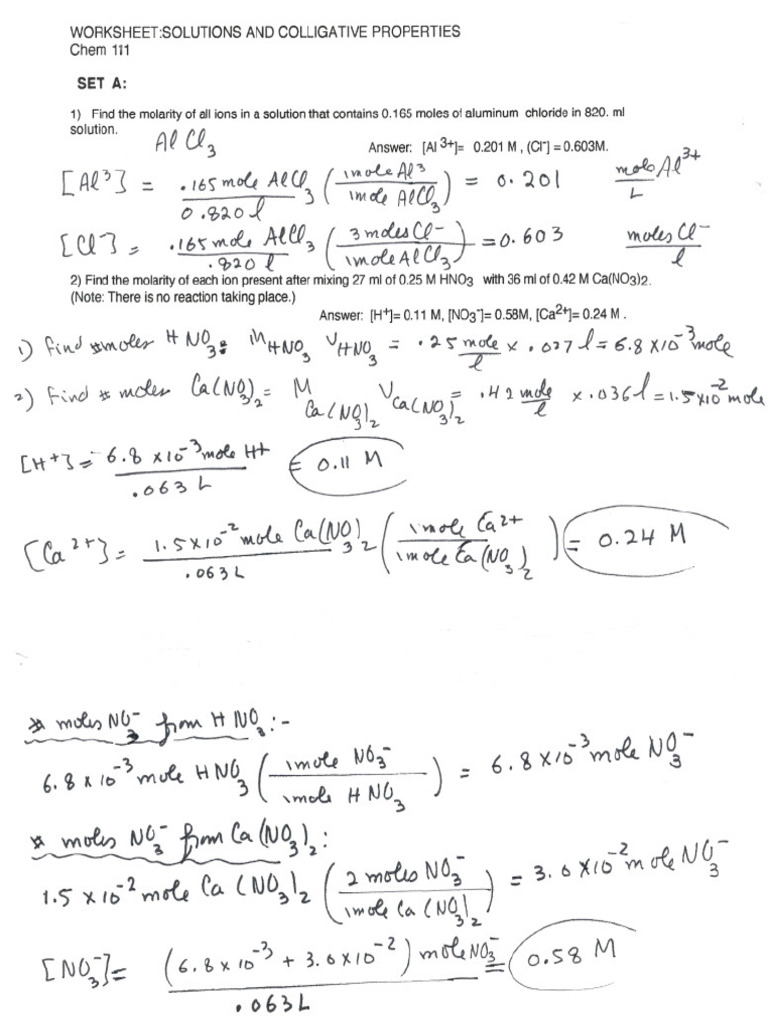 WORKSHEET:SOLUTIONS AND COLLIGATIVE PROPERTIES
Chem 111
SET A:
1) Find the molarity of all ions in a solution that contains 0.165 moles of aluminum chloride in 820. ml
solution.
Al Cl3
Answer: [Al 3+]= 0.201 M , (Cl-] = 0.603M.
[Al3] = .165 mole AlCl3 / 0.820 l (1 mole Al3 / 1 mole AlCl3) = 0.201 mole Al3+ / L
[Cl-] = .165 mole AlCl3 / .820 l (3 moles Cl- / 1 mole AlCl3) = 0.603 moles Cl- / l
2) Find the molarity of each ion present after mixing 27 ml of 0.25 M HNO3 with 36 ml of 0.42 M Ca(NO3)2.
(Note: There is no reaction taking place.)
Answer: [H+]= 0.11 M, [NO3-]= 0.58M, [Ca2+]= 0.24 M .
1) find # moles HNO3 = MHNO3 VHNO3 = .25 mole / l x .027 l = 6.8 x 10-3 mole
2) Find # moles Ca(NO3)2 = M Ca(NO3)2 VCa(NO3)2 = .42 mole / l x .036 l = 1.5 x 10-2 mole
[H+] = 6.8 x 10-3 mole H+ / .063 L = 0.11 M
[Ca2+] = 1.5 x 10-2 mole Ca(NO)3 2 / .063 L (1 mole Ca2+ / 1 mole Ca(NO3)2) = 0.24 M
* moles NO3- from HNO3 :-
6.8 x 10-3 mole HNO3 (1 mole NO3- / 1 mole HNO3) = 6.8 x 10-3 mole NO3-
* moles NO3- from Ca(NO3)2:
1.5 x 10-2 mole Ca(NO3)2 (2 moles NO3- / 1 mole Ca(NO3)2) = 3.0 x 10-2 mole NO3-
[NO3-] = (6.8 x 10-3 + 3.0 x 10-2) mole NO3- / .063 L = 0.58 M